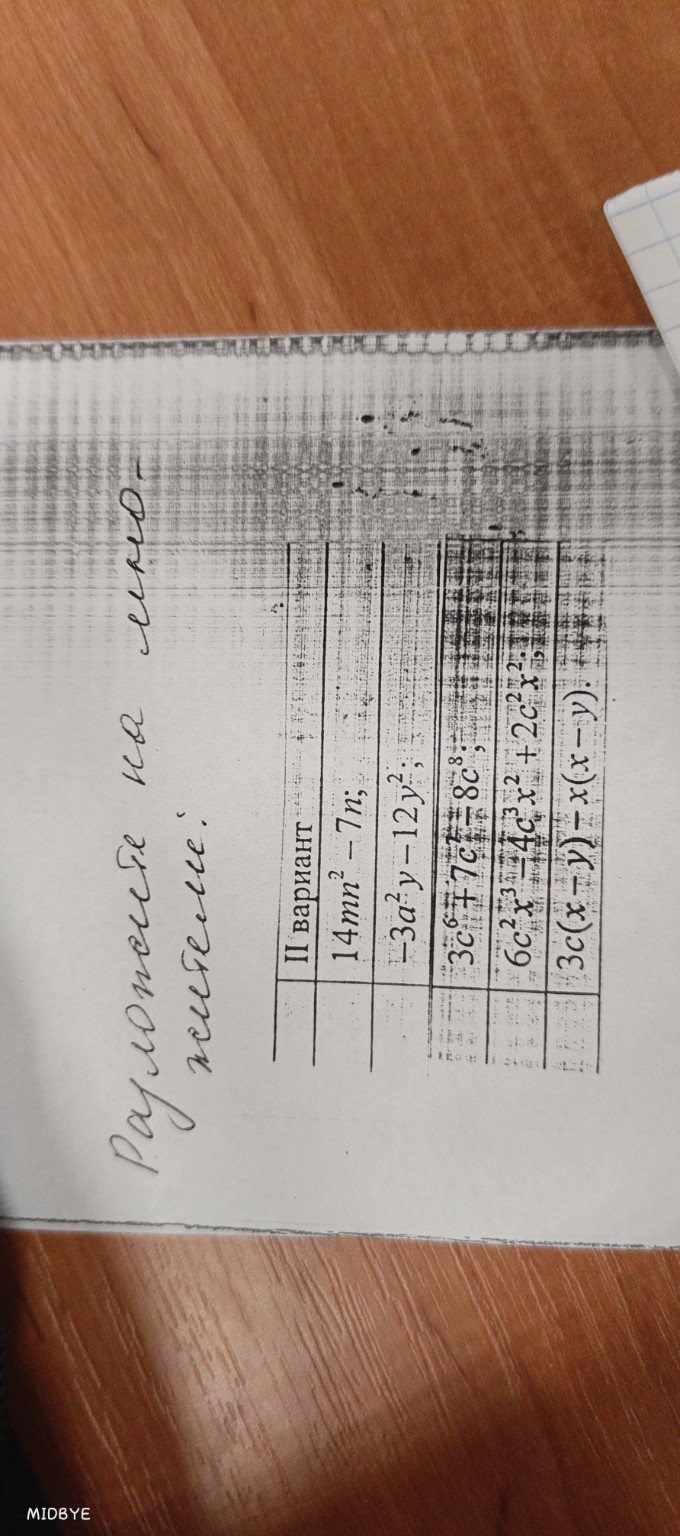 Разложите на мно-
жители:
II вариант
14mn² – 7n;
–3a²y – 12y²;
3c⁶ + 7c⁷ – 8c⁸;
6c²x³ – 4c³x² + 2c²x²;
3c(x – y) – x(x – y).
MIDBYE